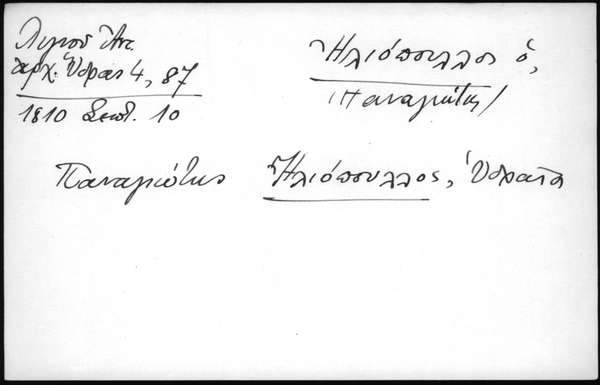 Λιγνού Ἀντ.
Ἀρχ. Ὕδρας 4, 87
1810 Σεπτ. 10
Ἡλιόπουλλος ὁ,
(Παναγιώτης)
Παναγιώτης Ἡλιόπουλλος, Ὑδραῖο